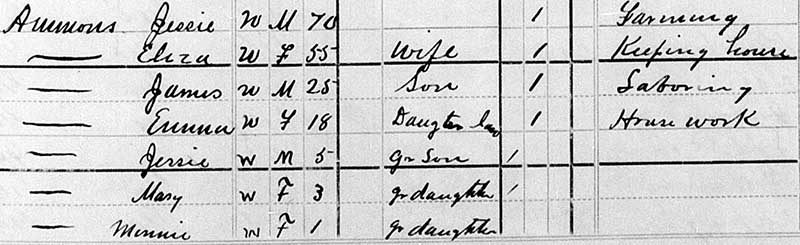 Ammons Jessie W M 70 1 Farming
— Eliza W F 55 Wife 1 Keeping house
— James W M 25 Son 1 Laboring
— Emma W F 18 Daugter law 1 House work
— Jessie W M 5 Gr Son 1
— Mary W F 3 gr daughter 1
— Minnie W F 1 gr daughter